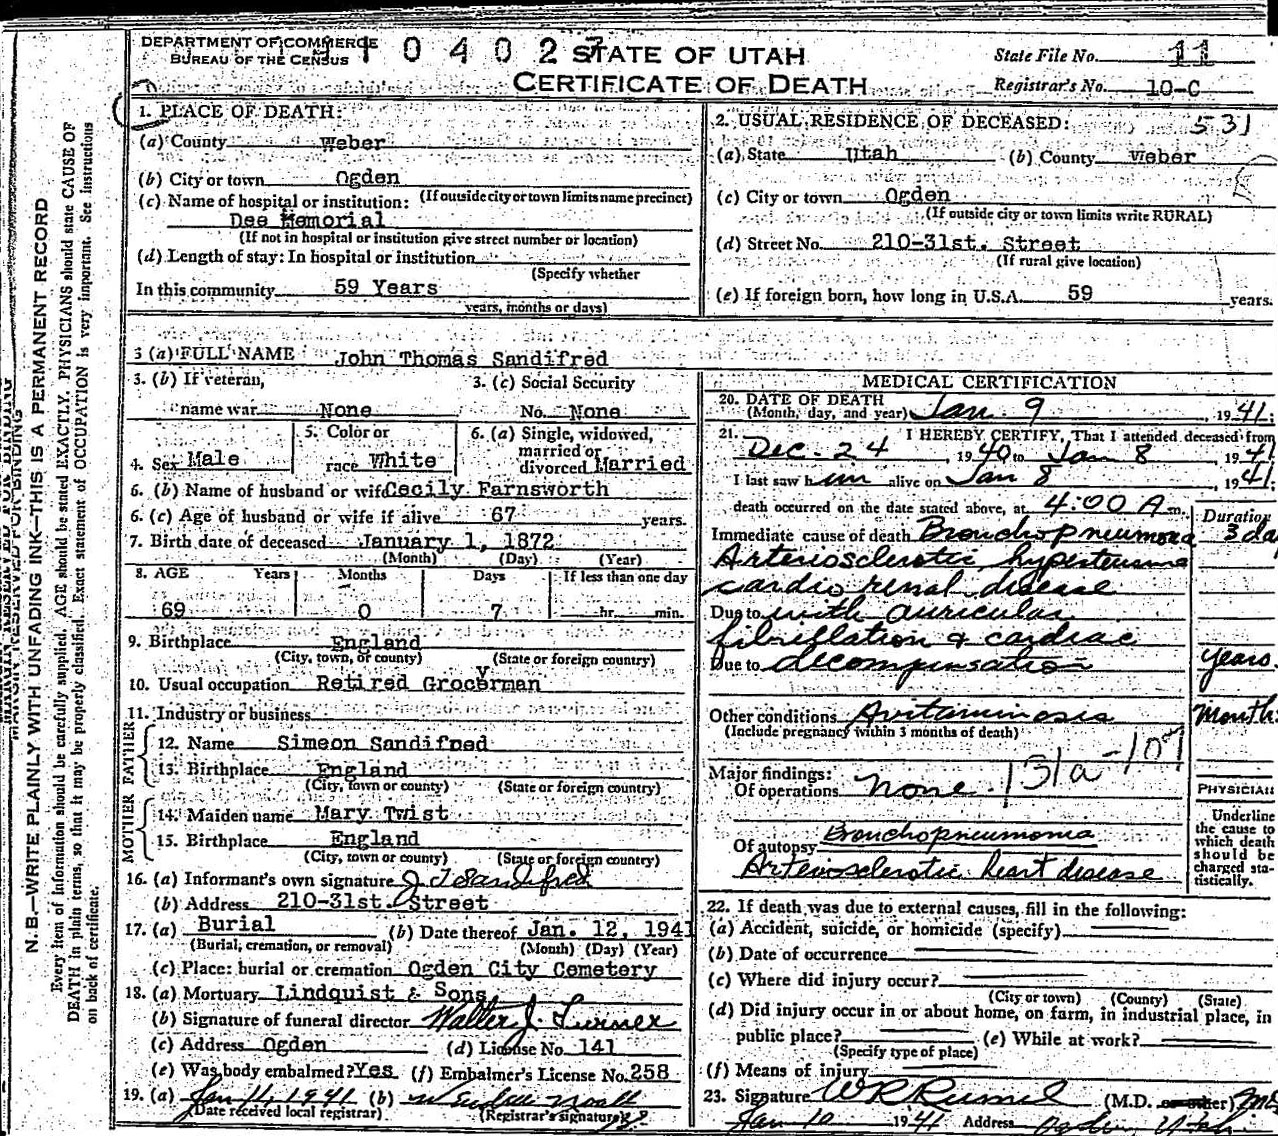 DEPARTMENT OF COMMERCE
BUREAU OF THE CENSUS
1 0 4 0 2 7
STATE OF UTAH
CERTIFICATE OF DEATH
State File No. 11
Registrar's No. 10-C
N. B.—WRITE PLAINLY WITH UNFADING INK—THIS IS A PERMANENT RECORD
Every item of information should be carefully supplied. AGE should be stated EXACTLY. PHYSICIANS should state CAUSE OF
DEATH in plain terms, so that it may be properly classified. Exact statement of OCCUPATION is very important. See Instructions
on back of certificate.
1. PLACE OF DEATH:
(a) County Weber
(b) City or town Ogden
(If outside city or town limits name precinct)
(c) Name of hospital or institution:
Dee Memorial
(If not in hospital or institution give street number or location)
(d) Length of stay: In hospital or institution
(Specify whether
In this community 59 Years
years, months or days)
2. USUAL RESIDENCE OF DECEASED: 531
(a) State Utah (b) County Weber
(c) City or town Ogden
(If outside city or town limits write RURAL)
(d) Street No. 210-31st. Street
(If rural give location)
(e) If foreign born, how long in U.S.A. 59 years.
3 (a) FULL NAME John Thomas Sandifred
3. (b) If veteran,
name war None
3. (c) Social Security
No. None
4. Sex Male
5. Color or
race White
6. (a) Single, widowed,
married or
divorced Married
6. (b) Name of husband or wife Cecily Farnsworth
6. (c) Age of husband or wife if alive 67 years.
7. Birth date of deceased January 1, 1872
(Month) (Day) (Year)
8. AGE Years Months Days If less than one day
69 0 7 hr. min.
9. Birthplace England
(City, town, or county) (State or foreign country)
10. Usual occupation Retired Grocerman
11. Industry or business
FATHER
12. Name Simeon Sandifred
13. Birthplace England
(City, town or county) (State or foreign country)
MOTHER
14. Maiden name Mary Twist
15. Birthplace England
(City, town or county) (State or foreign country)
16. (a) Informant's own signature J T Sandifred
(b) Address 210-31st. Street
17. (a) Burial (b) Date thereof Jan. 12, 1941
(Burial, cremation, or removal) (Month) (Day) (Year)
(c) Place: burial or cremation Ogden City Cemetery
18. (a) Mortuary Lindquist & Sons
(b) Signature of funeral director Walter J. Turner
(c) Address Ogden (d) License No. 141
(e) Was body embalmed? Yes (f) Embalmer's License No. 258
19. (a) Jan 11, 1941 (b)
(Date received local registrar) (Registrar's signature)
MEDICAL CERTIFICATION
20. DATE OF DEATH
(Month, day, and year) Jan. 9 1941;
21. I HEREBY CERTIFY, That I attended deceased from
Dec. 24, 1940 to Jan 8 1941;
I last saw him alive on Jan 8, 1941;
death occurred on the date stated above, at 4:00 A m.
Duration
Immediate cause of death Bronchopneumonia 3 day
Arteriosclerotic hypertensive
cardio renal disease
Due to with auricular
fibrillation & cardiac
Due to decompensation years
Other conditions Avitaminosis Months
(Include pregnancy within 3 months of death)
Major findings:
Of operations none 131a-107
PHYSICIAN
Underline
the cause to
which death
should be
charged sta-
tistically.
Of autopsy Bronchopneumonia
Arteriosclerotic heart disease
22. If death was due to external causes, fill in the following:
(a) Accident, suicide, or homicide (specify)
(b) Date of occurrence
(c) Where did injury occur?
(City or town) (County) (State)
(d) Did injury occur in or about home, on farm, in industrial place, in
public place? (e) While at work?
(Specify type of place)
(f) Means of injury
23. Signature W R Rumel (M.D. or other) MD
Jan 10 1941 Address Ogden, Utah